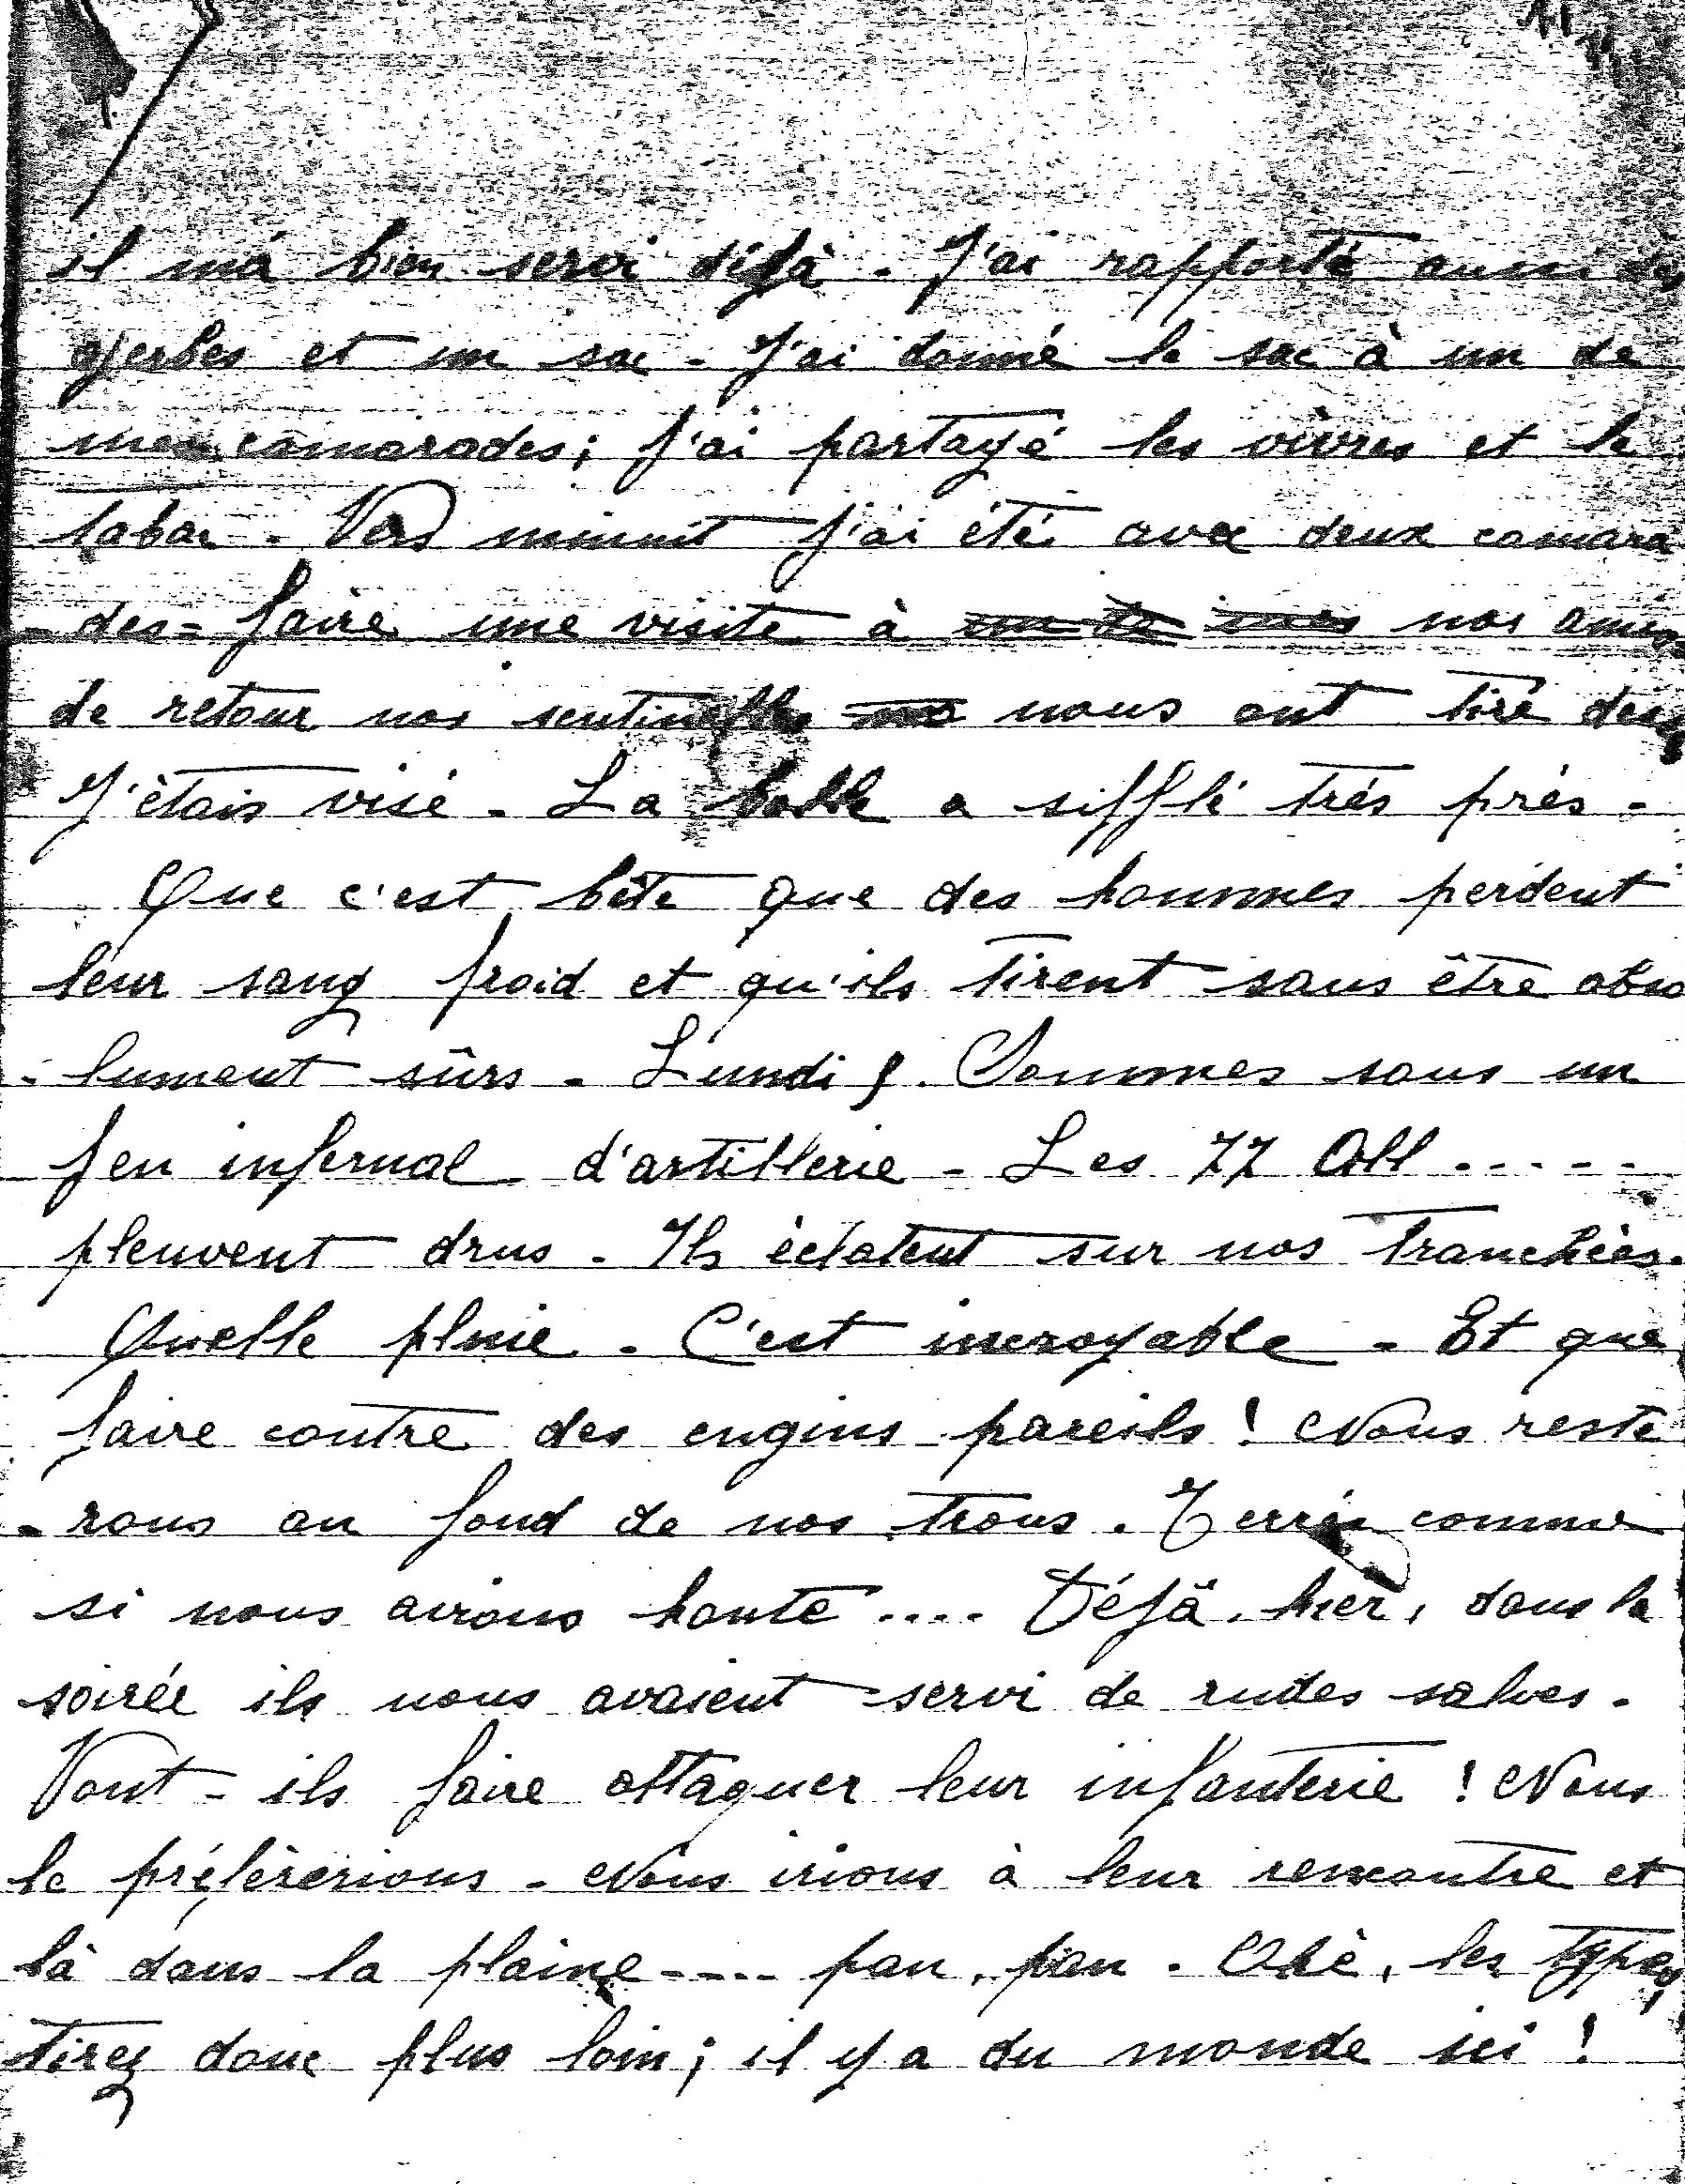 il m'a bien servi déjà. J'ai rapporté aussi des
gerbes et un sac - J'ai donné le sac à un de
mes camarades; j'ai partagé les vivres et le
tabac. Vers minuit j'ai été avec deux camara
-des= faire une visite à nos amis
de retour nos sentinelles nous ont tiré des
J'étais visé - La balle a sifflé très près -
Que c'est bête que des hommes perdent
leur sang froid et qu'ils tirent sans être abso
-lument sûrs - Lundi. Sommes sous un
feu infernal d'artillerie - Les 77 All .....
pleuvent drus - Ils éclatent sur nos tranchées.
Quelle pluie. C'est incroyable - Et que
faire contre des engins pareils! Nous reste
-rons au fond de nos trous. Terrés comme
si nous avions honte .... Déjà, hier, dans la
soirée ils nous avaient servi de rudes salves.
Vont-ils faire attaquer leur infanterie! Nous
le préfèrerions - Nous irions à leur rencontre et
là dans la plaine---- pan, pan. Ohè, les types,
tirez donc plus loin; il y a du monde ici!